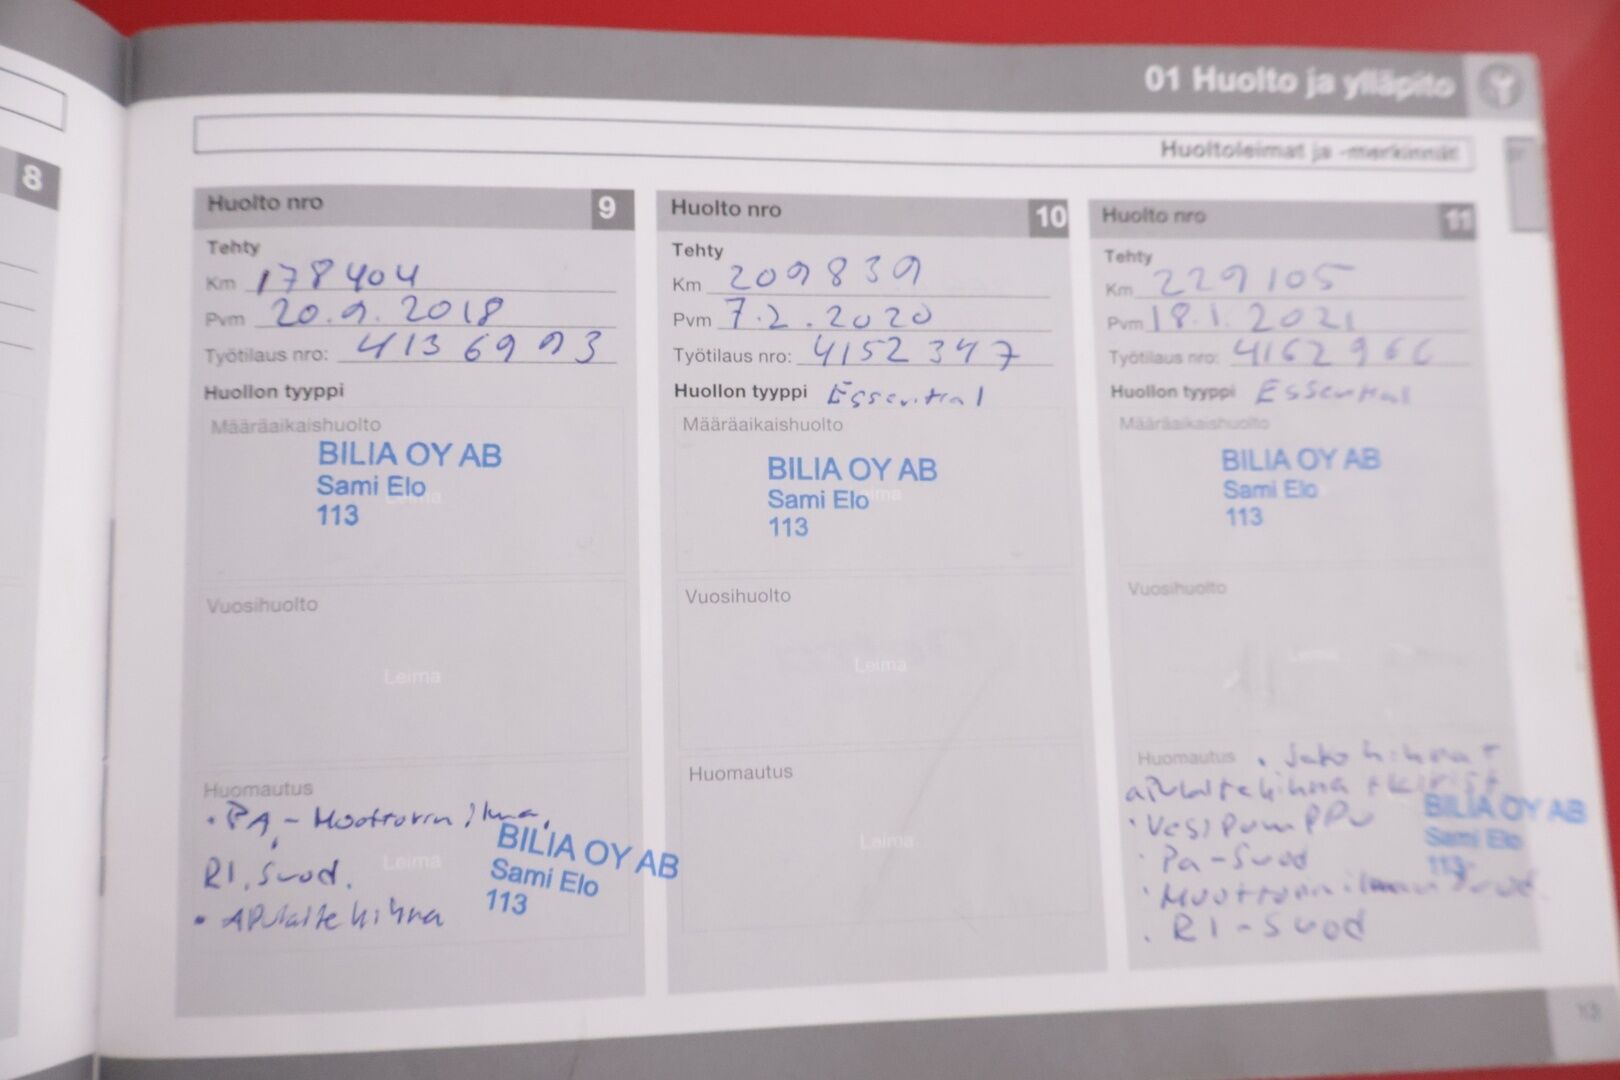 01 Huolto ja ylläpito
Huoltoleimat ja -merkinnät
8
Huolto nro 9
Tehty
Km 178404
Pvm 20.9.2018
Työtilaus nro: 4136993
Huollon tyyppi
Määräaikaishuolto
BILIA OY AB
Sami Elo
113
Vuosihuolto
Leima
Huomautus
• PA, - Moottorin ilma,
RI, Suod.
Leima
• Apulaitehihna
BILIA OY AB
Sami Elo
113
Huolto nro 10
Tehty
Km 209839
Pvm 7.2.2020
Työtilaus nro: 4152347
Huollon tyyppi Essential
Määräaikaishuolto
BILIA OY AB
Sami Elo
113
Vuosihuolto
Leima
Huomautus
Leima
Huolto nro 11
Tehty
Km 229105
Pvm 18.1.2021
Työtilaus nro: 4162966
Huollon tyyppi Essential
Määräaikaishuolto
BILIA OY AB
Sami Elo
113
Vuosihuolto
Huomautus • Jakohihna +
apulaitehihna + kirist
• Vesipumppu
• Pa-Suod
• Moottorin ilman suod.
• RI-Suod
BILIA OY AB
Sami Elo
113